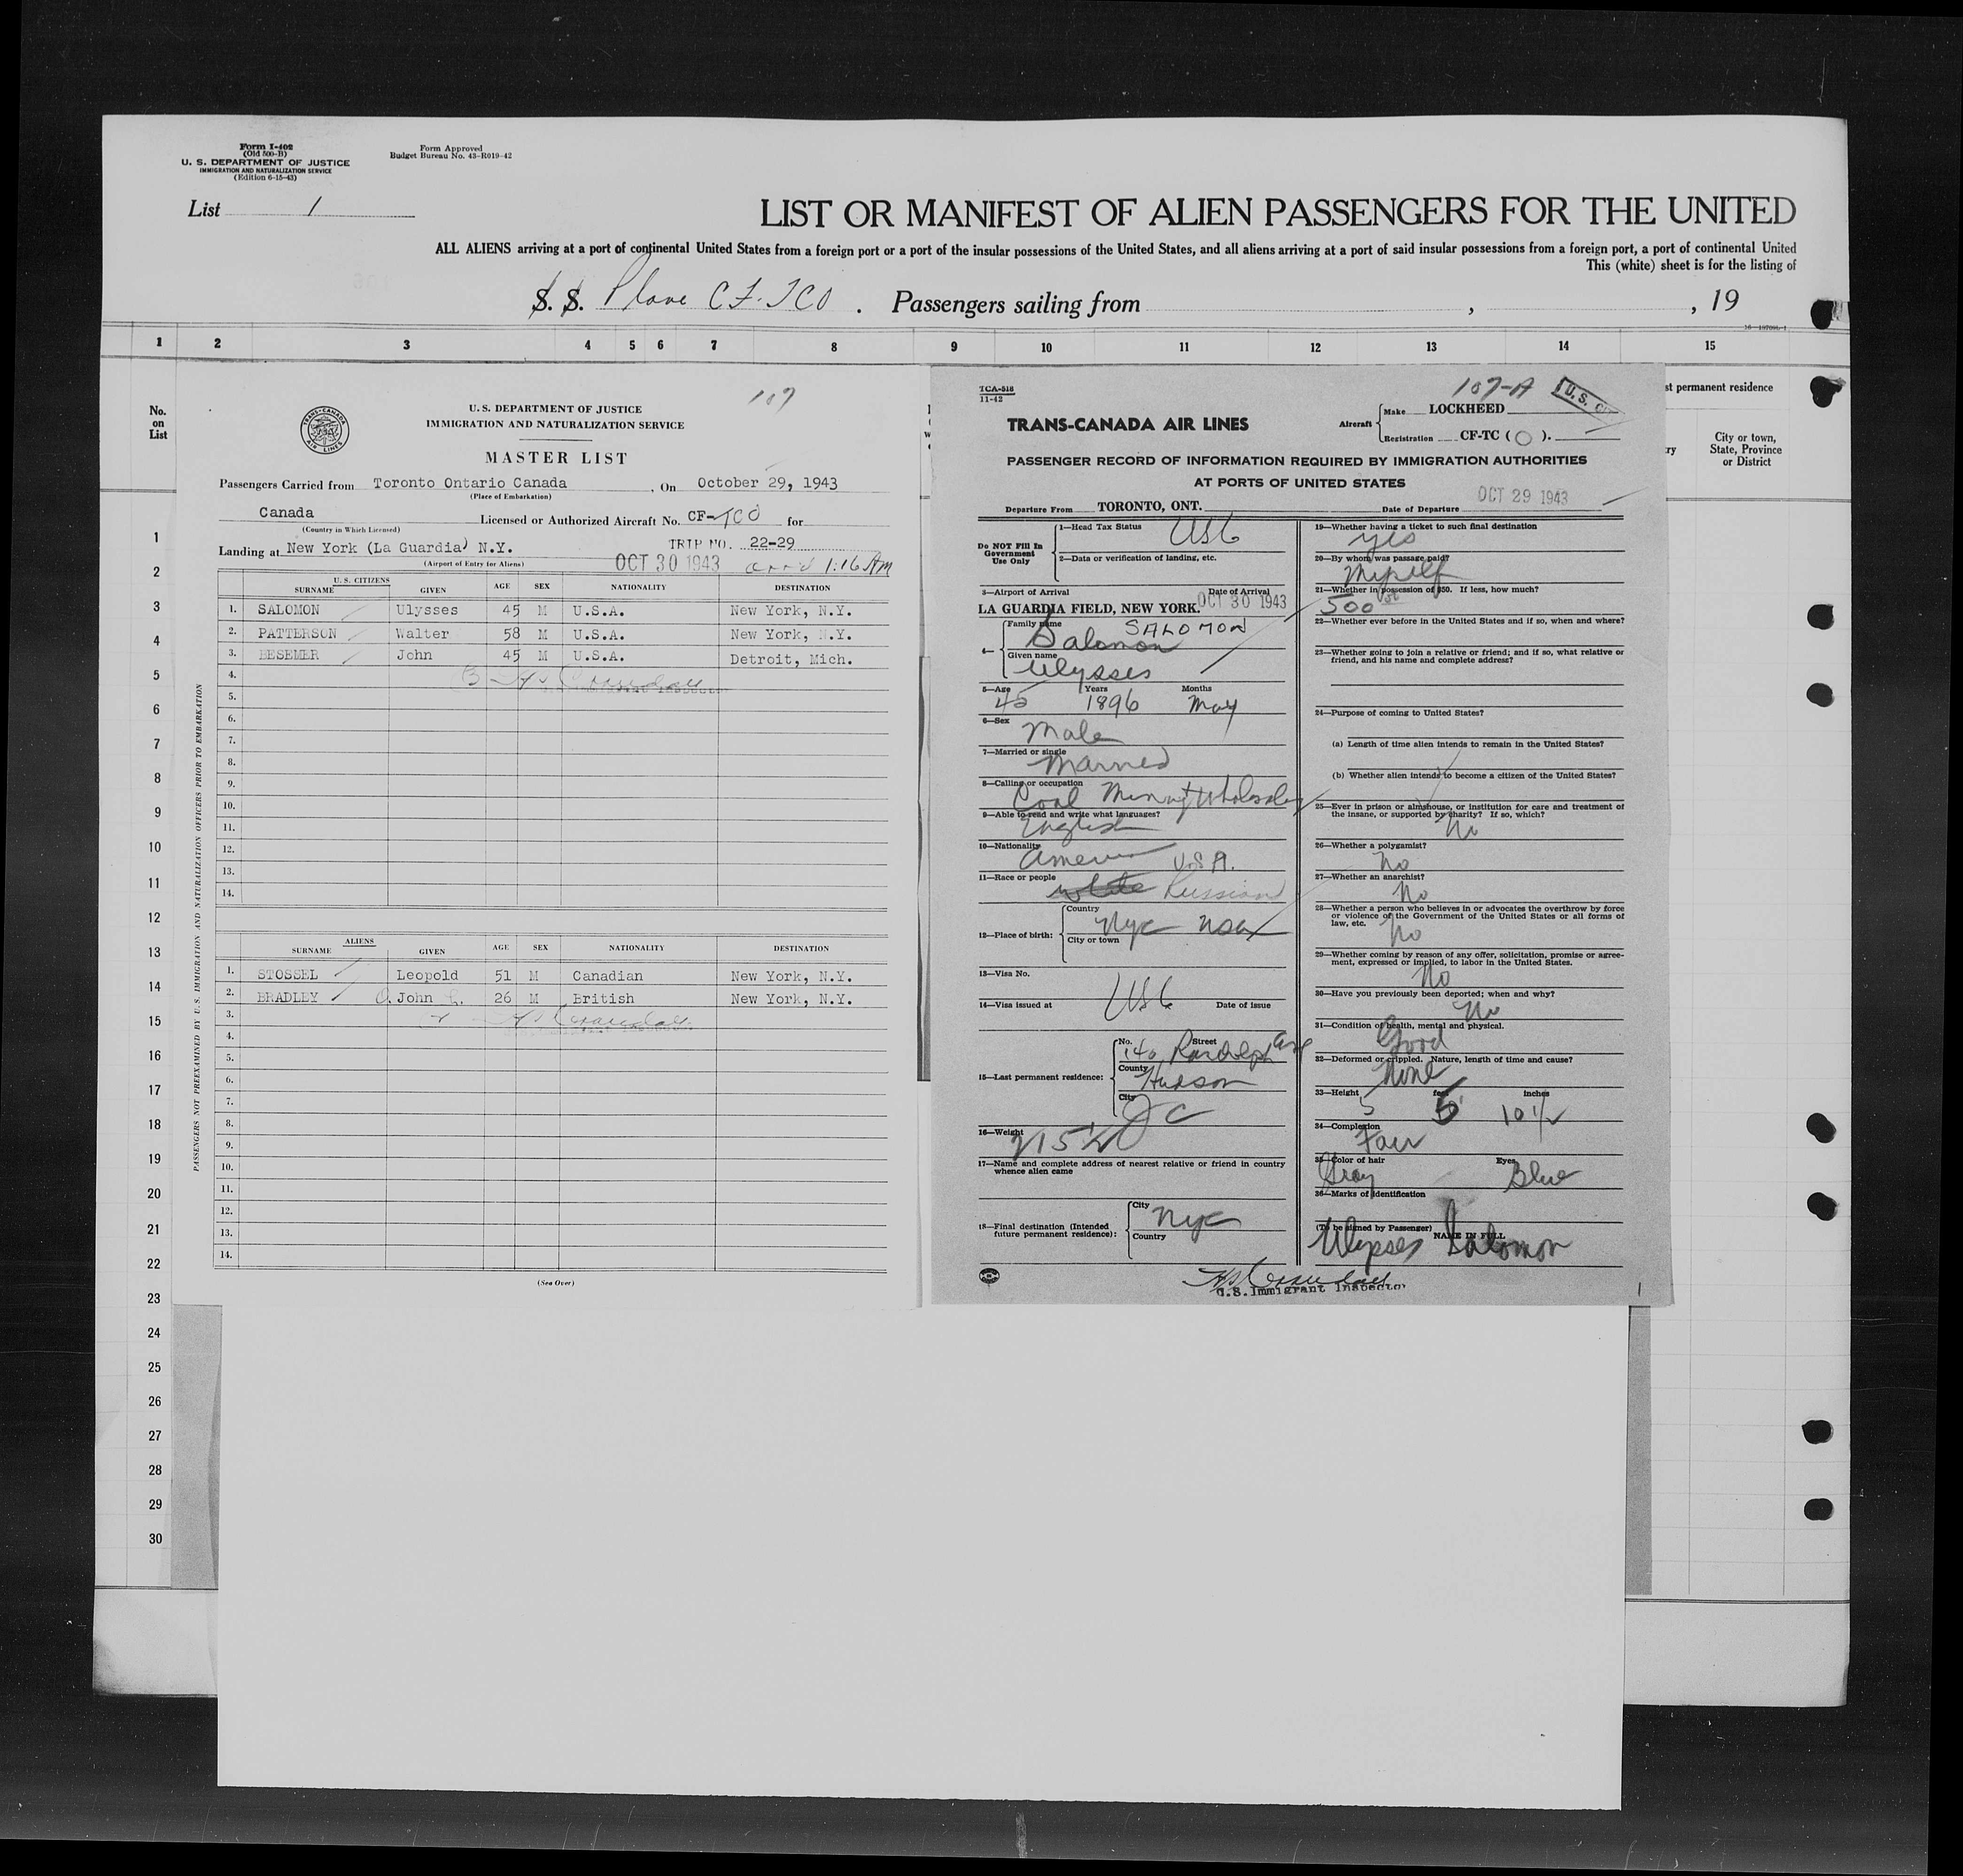 Form I-402
(Old 500-B)
U. S. DEPARTMENT OF JUSTICE
IMMIGRATION AND NATURALIZATION SERVICE
(Edition 6-15-43)
Form Approved
Budget Bureau No. 43-R019-42
List 1
LIST OR MANIFEST OF ALIEN PASSENGERS FOR THE UNITED
ALL ALIENS arriving at a port of continental United States from a foreign port or a port of the insular possessions of the United States, and all aliens arriving at a port of said insular possessions from a foreign port, a port of continental United
This (white) sheet is for the listing of
S. S. Plane CF-TCO . Passengers sailing from , , 19
1 2 3 4 5 6 7 8 9 10 11 12 13 14 15
No.
on
List
st permanent residence
City or town,
State, Province
or District
1
2
3
4
5
6
7
8
9
10
11
12
13
14
15
16
17
18
19
20
21
22
23
24
25
26
27
28
29
30
107
TRANS-CANADA AIR LINES
U. S. DEPARTMENT OF JUSTICE
IMMIGRATION AND NATURALIZATION SERVICE
MASTER LIST
Passengers Carried from Toronto Ontario Canada , On October 29, 1943
(Place of Embarkation)
Canada Licensed or Authorized Aircraft No. CF-TCO for
(Country in Which Licensed)
TRIP NO. 22-29
Landing at New York (La Guardia) N.Y. OCT 30 1943 arr'd 1:16 AM
(Airport of Entry for Aliens)
PASSENGERS NOT PREEXAMINED BY U. S. IMMIGRATION AND NATURALIZATION OFFICERS PRIOR TO EMBARKATION
U. S. CITIZENS
SURNAME GIVEN AGE SEX NATIONALITY DESTINATION
1. SALOMON Ulysses 45 M U.S.A. New York, N.Y.
2. PATTERSON Walter 58 M U.S.A. New York, N.Y.
3. BESEMER John 45 M U.S.A. Detroit, Mich.
4.
5.
6.
7.
8.
9.
10.
11.
12.
13.
14.
ALIENS
SURNAME GIVEN AGE SEX NATIONALITY DESTINATION
1. STOSSEL Leopold 51 M Canadian New York, N.Y.
2. BRADLEY John 26 M British New York, N.Y.
3.
4.
5.
6.
7.
8.
9.
10.
11.
12.
13.
14.
(See Over)
TCA-518
11-42
107-A
U. S.
TRANS-CANADA AIR LINES
Aircraft Make LOCKHEED
Registration CF-TC ( O ).
PASSENGER RECORD OF INFORMATION REQUIRED BY IMMIGRATION AUTHORITIES
AT PORTS OF UNITED STATES
Departure From TORONTO, ONT. Date of Departure OCT 29 1943
Do NOT Fill In
Government
Use Only
1—Head Tax Status USC
2—Data or verification of landing, etc.
3—Airport of Arrival Date of Arrival
LA GUARDIA FIELD, NEW YORK. OCT 30 1943
4— Family name SALOMON
Salomon
Given name
Ulysses
5—Age Years Months
45 1896 May
6—Sex
Male
7—Married or single
Married
8—Calling or occupation
Coal Mining & Wholesaler
9—Able to read and write what languages?
English
10—Nationality
American U.S.A.
11—Race or people
white Russian
12—Place of birth: Country
NYC
City or town
13—Visa No.
USC
14—Visa issued at Date of issue
15—Last permanent residence: No. Street
140 Randolph Ave
County
Hudson
City
J C
16—Weight
215 lb
17—Name and complete address of nearest relative or friend in country
whence alien came
18—Final destination (Intended
future permanent residence): City
NYC
Country
19—Whether having a ticket to such final destination
yes
20—By whom was passage paid?
Myself
21—Whether in possession of $50. If less, how much?
500
22—Whether ever before in the United States and if so, when and where?
23—Whether going to join a relative or friend; and if so, what relative or
friend, and his name and complete address?
24—Purpose of coming to United States?
(a) Length of time alien intends to remain in the United States?
(b) Whether alien intends to become a citizen of the United States?
25—Ever in prison or almshouse, or institution for care and treatment of
the insane, or supported by charity? If so, which?
No
26—Whether a polygamist?
No
27—Whether an anarchist?
No
28—Whether a person who believes in or advocates the overthrow by force
or violence of the Government of the United States or all forms of
law, etc.
No
29—Whether coming by reason of any offer, solicitation, promise or agree-
ment, expressed or implied, to labor in the United States.
No
30—Have you previously been deported; when and why?
No
31—Condition of health, mental and physical.
Good
32—Deformed or crippled. Nature, length of time and cause?
None
33—Height feet inches
5 5 10 1/2
34—Complexion
Fair
35—Color of hair Eyes
Gray Blue
36—Marks of identification
(To be signed by Passenger) NAME IN FULL
Ulysses Salomon
U.S. Immigrant Inspector